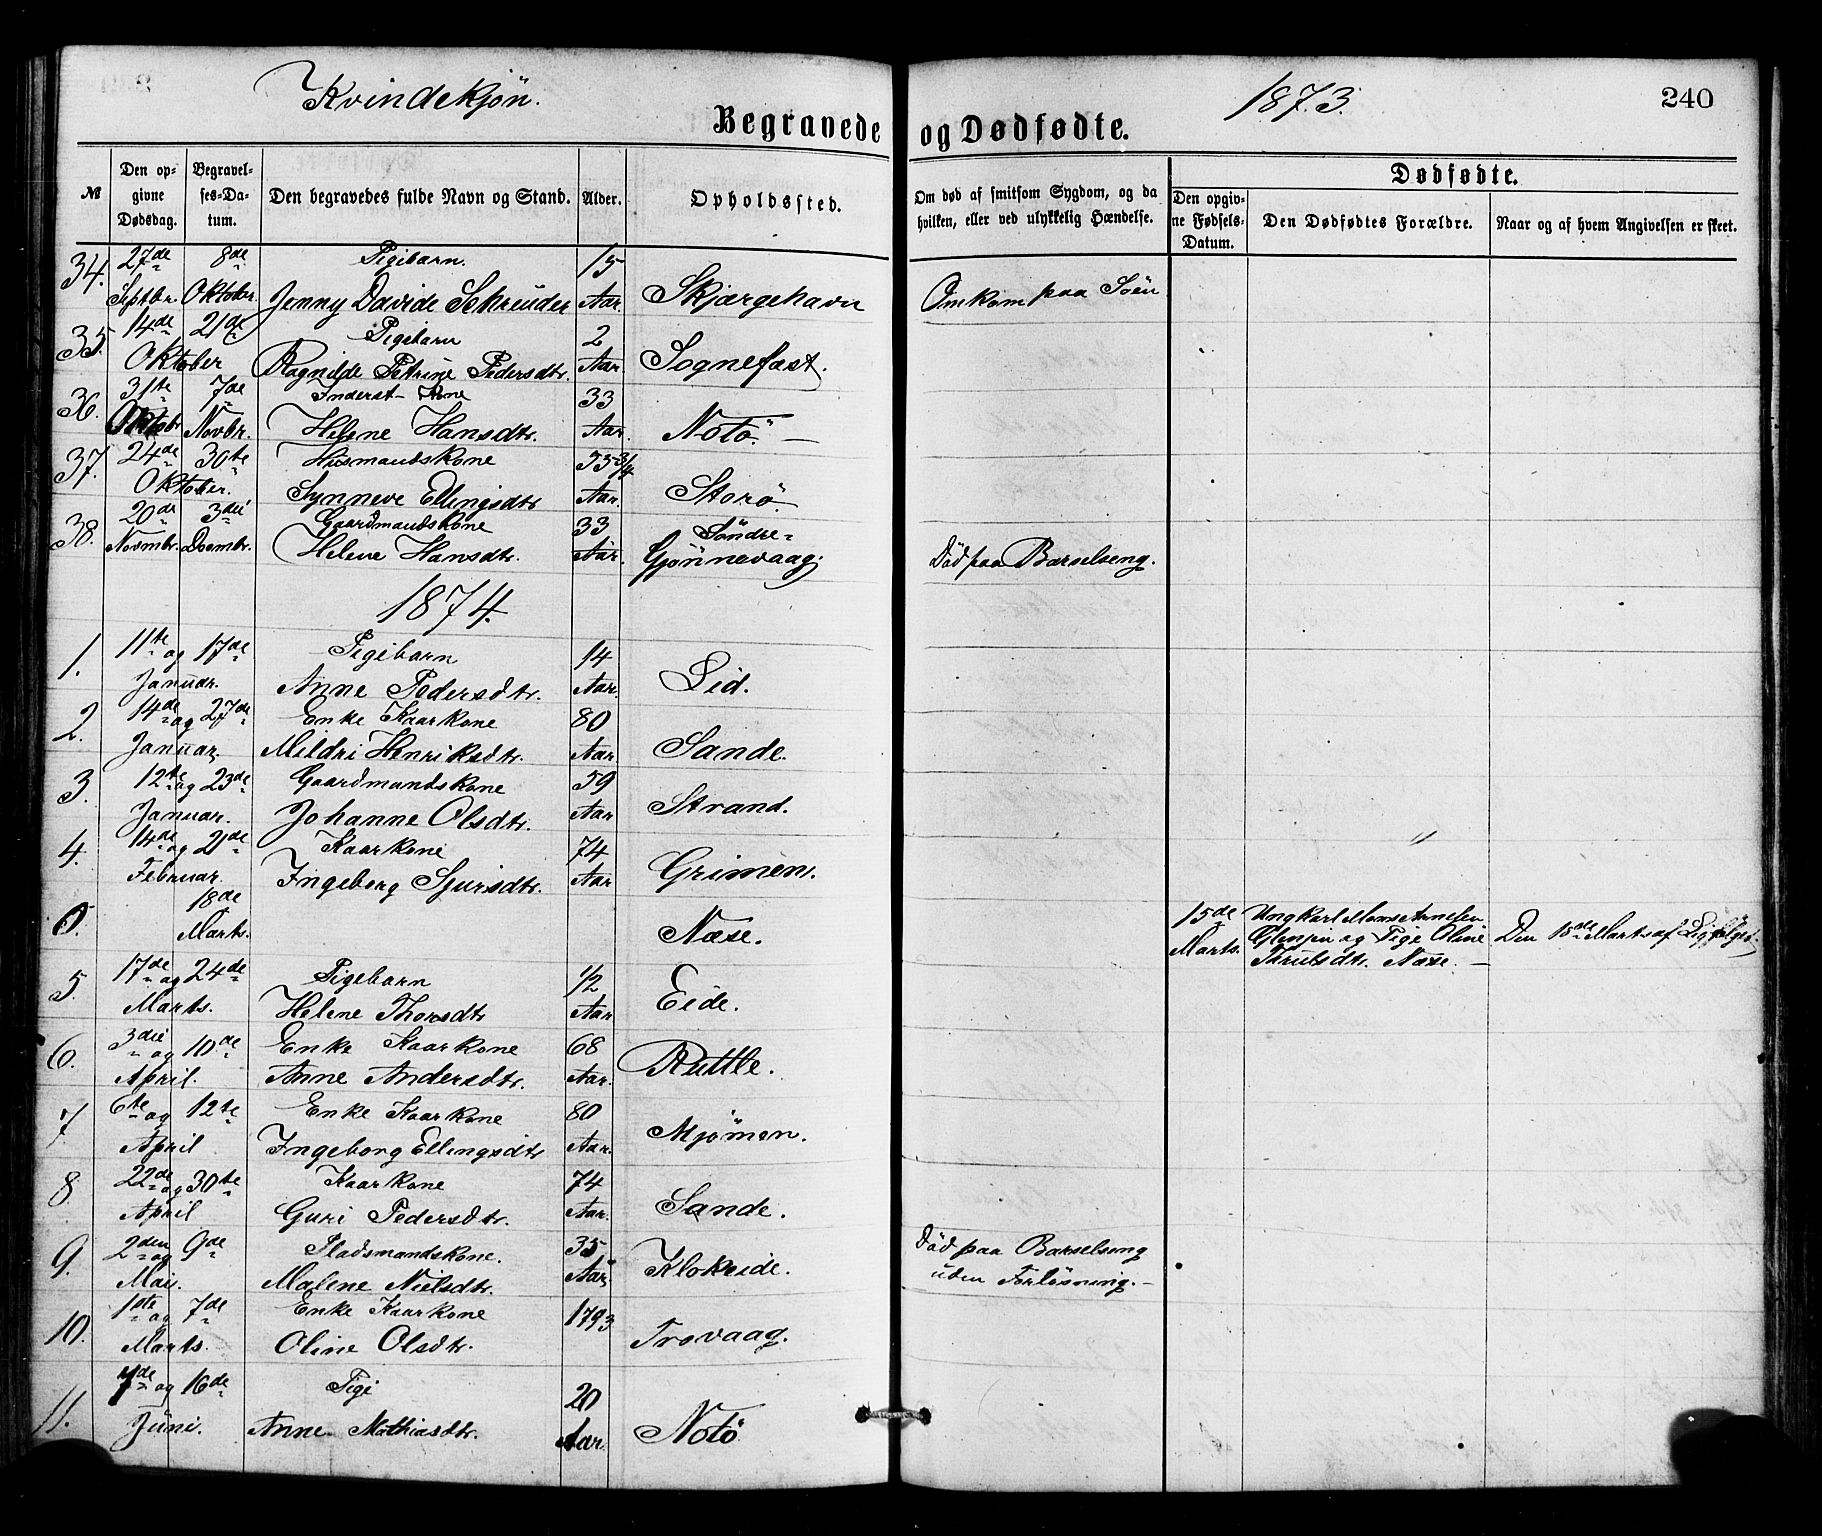 Kvindekjön.
1873.
240
Begravede og Dødfødte.
№
Den opgivne Dødsdag.
Begravelses-Datum.
Den begravedes fulde Navn og Stand.
Alder.
Opholdssted.
Om død af smitsom Sygdom, og da hvilken, eller ved ulykkelig Hændelse.
Dødfødte.
Den opgivne Fødsels-Datum.
Den Dødfødtes Forældre.
Naar og af hvem Angivelsen er skeet.
34. 27de 8de Pigebarn. 15
Septbr. Oktober. Jenny Davide Schreuder Aar. Skjærgehavn Omkom paa Söen
35. 14de 21de Pigebarn 2
Oktober Ragnilde Petrine Pedersdtr. Aar Sognefæst.
36. 31te 7de Inderst-Kone 33
Oktobr Novbr. Helene Hansdtr. Aar. Notö. —
37. 24de 30te Husmandskone 53 3/4
Oktober. Synneve Ellingsdtr Aar. Storö.
38. 20de 3die Gaardmandskone 33 Söndre-
Novmbr. Decmbr. Helene Hansdtr. Aar. Gjönnevaag. Död paa Barselseng.
1874.
1. 11te og 17de Pigebarn 14
Januar. Anne Pedersdtr. Aar. Lid.
2. 14de og 27de Enke Kaarkone 80
Januar. Mildri Henriksdtr. Aar Sande.
3. 12te og 23de Gaardmandskone 59
Januar. Johanne Olsdtr. Aar Strand.
4. 14de og 21de Kaarkone 74
Februar. Ingeborg Sjursdtr. Aar Grimen.
0. 18de Marts. Næse. 15de Marts.
Ungkarl Mons Arnesen
og Pige Oline
Næse. —
Den 18de Marts af
5. 17de og 24de Pigebarn 1/2
Marts. Helene Thorsdtr Aar Eide.
6. 3die og 10de Enke Kaarkone 68
April. Anne Andersdtr. Aar. Rutle.
7 6te og 12te Enke Kaarkone 80
April Ingeborg Ellingsdtr Aar. Mjömen.
8 22de og 30te Kaarkone 74
April Guri Pedersdtr. Aar. Sande.
9. 2den og 9de Pladsmandskone. 35 Död paa Barselseng
Mai. Malene Nielsdtr. Aar Klokeide. uden Forlösning. —
10. 1ste og 7de Enke Kaarkone 1793
Marts. Oline Olsdtr. Trovaag.
11. 7de og 16de Pige 20
Juni. Anne Mathiasdtr. Aar. Notö